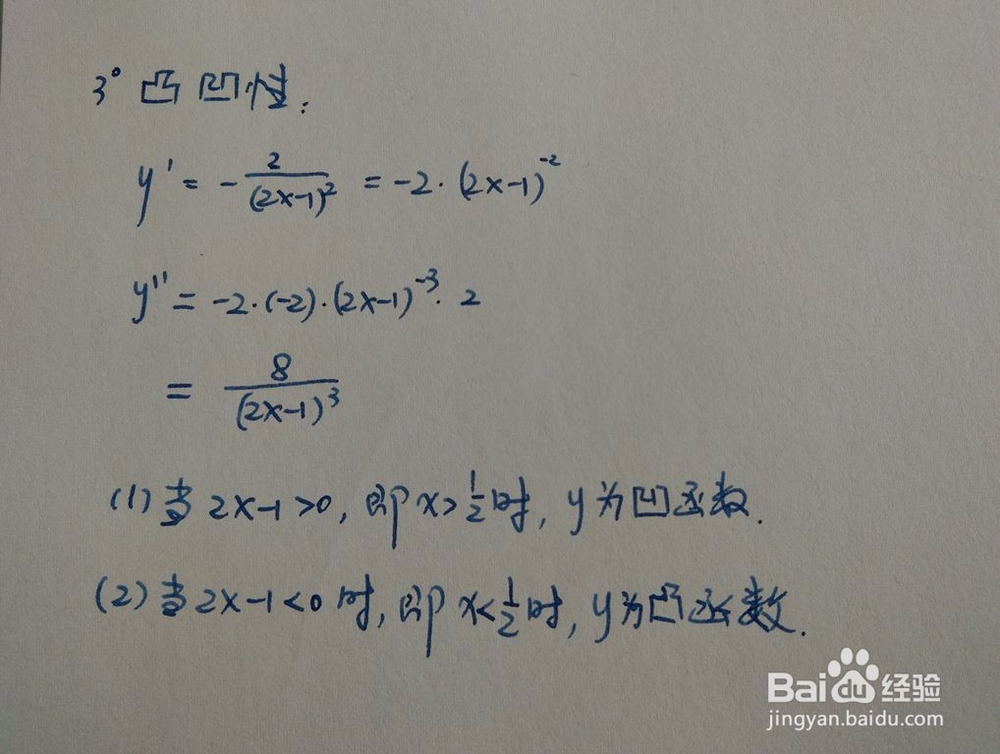 3° 凸凹性:
y' = -2/(2x-1)² = -2·(2x-1)⁻²
y'' = -2·(-2)·(2x-1)⁻³·2
= 8/(2x-1)³
(1) 当 2x-1>0, 即 x>1/2 时, y为凹函数.
(2) 当 2x-1<0 时, 即 x<1/2 时, y为凸函数.
Baidu经验
jingyan.baidu.com